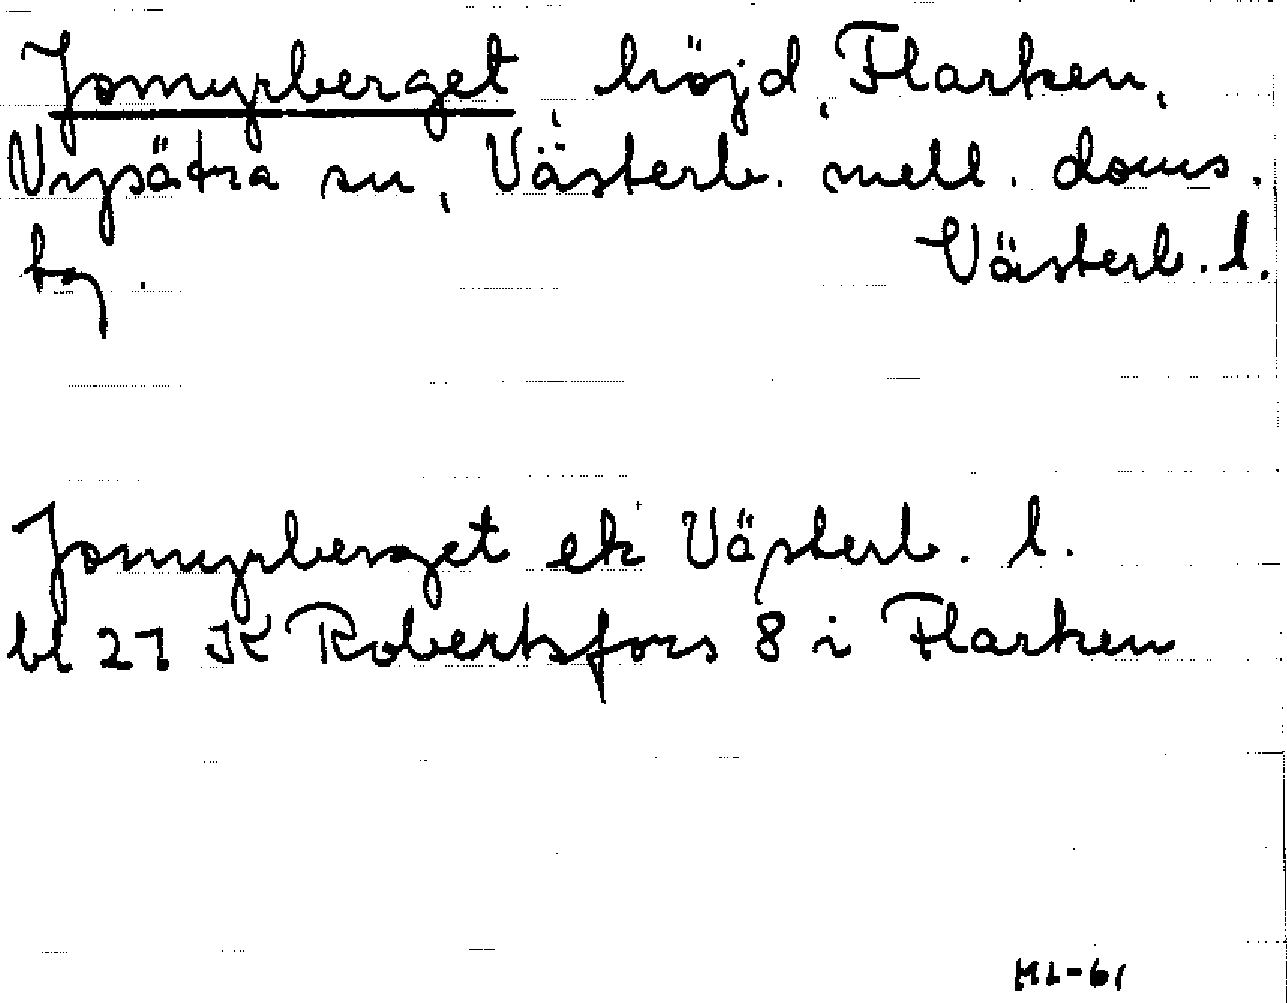 Jomyrberget, höjd, Flarken,
Nysätra sn, Västerb. mell. doms.
bg. Västerb. l.
Jomyrberget ek Västerb. l.
bl 21 K Robertsfors 8 i Flarken
ML-61